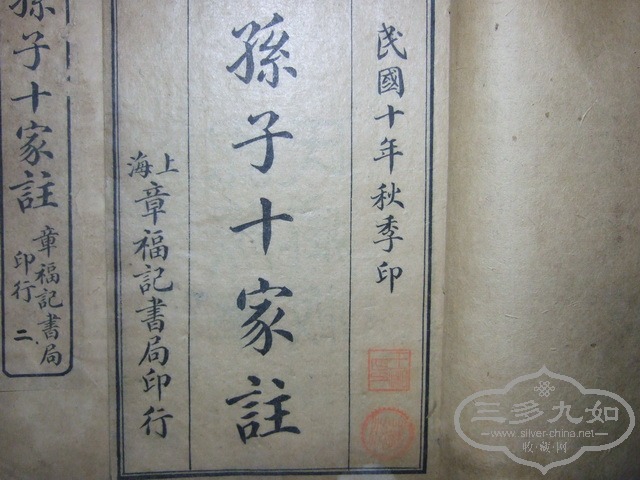 民國十年秋季印
孫子十家註
上海
章福記書局印行
孫子十家註
章福記書局
印行
二
三多九如
www.silver-china.net
收·藏·网